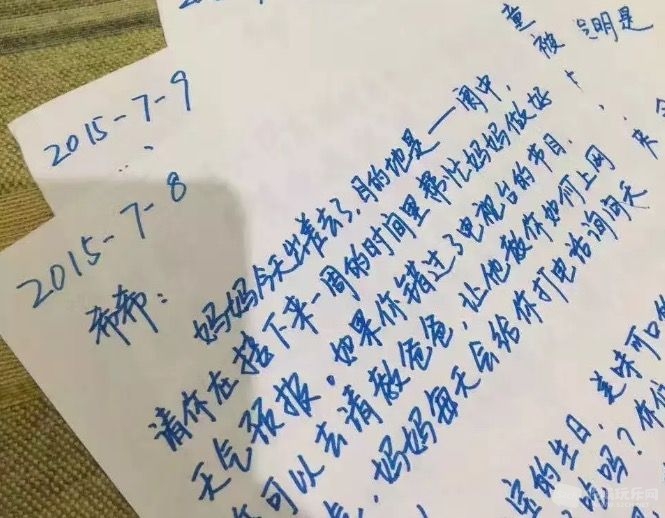 2015-7-9
2015-7-8
希希：
妈妈今天出差去了，目的地是——阆中，
请你在接下来一周的时间里帮忙妈妈做好
天气预报。如果你错过了电视台的节目，
可以去请教爸爸，让他教你如何上网
，妈妈每天会给你打电话询问天
童被
明是
来
的生日，美味可口的
吗？你们